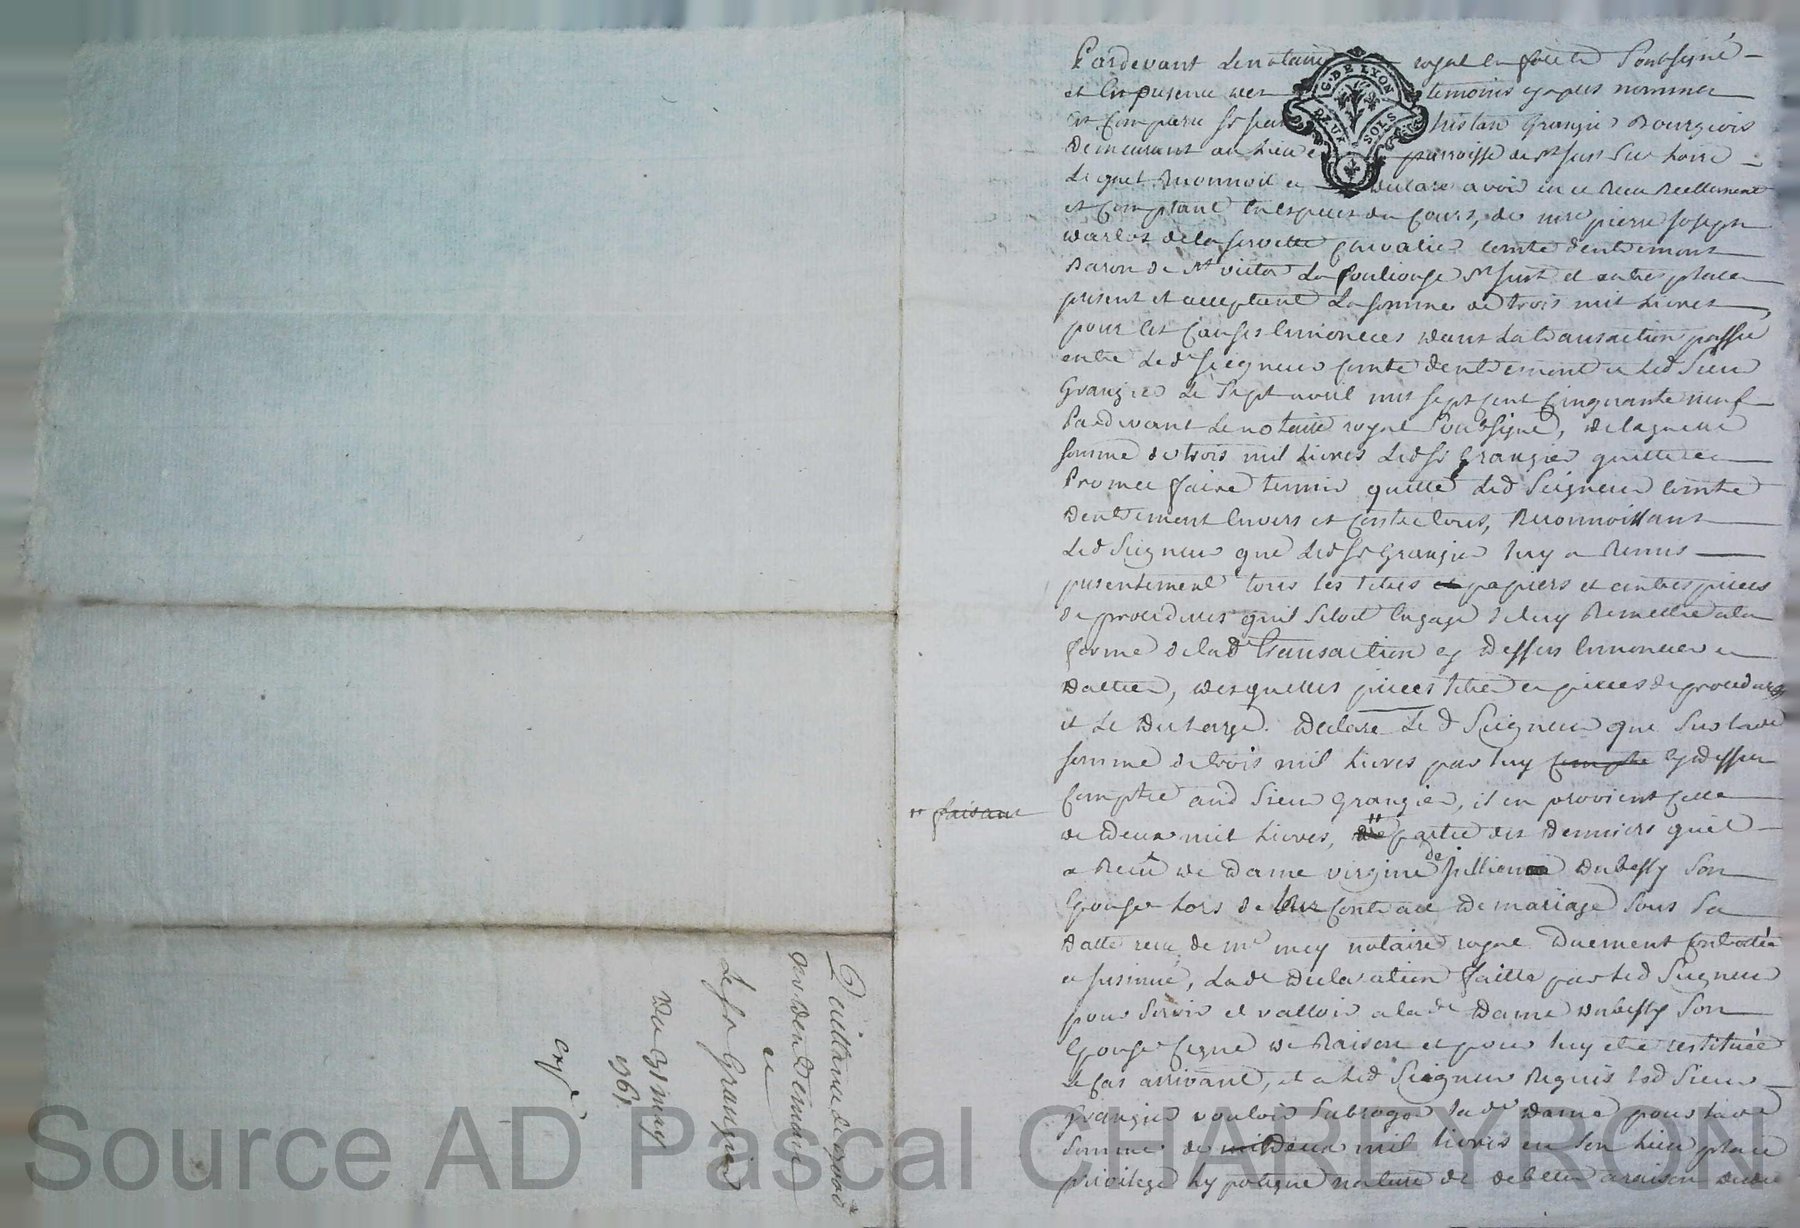 Pardevant Le notaire royal en forets Soussigné
et En presence des temoins cy apres nommes
est comparu Sr Jean tristan Grangier Bourgeois
Demeurant au Lieu parroisse de St Just Sur Loire
Lequel Reconnoit et Declare avoir eu et Recu Reellement
et Comptant En especes du Cours, de mre pierre joseph
de la servette chevalier comte d'entremont
Baron de St victor La fouliouse St Just et autres places
present et acceptant La somme de trois mil Livres
pour les Causes Ennoncees dans La transaction passée
entre Led Seigneur Comte dentremont et Led Sieur
Grangier Le Sept avril mil sept cent Cinquante neuf
Pardevant Le notaire royal Soussigné, de laquelle
somme de trois mil Livres Led Sr Grangier quitte et
Promet faire tenir quitte Led Seigneur Comte
dentremont Envers et Contre tous, Reconnoissant
Led Seigneur que Led Sr Grangier luy a Remis
presentement tous les titres et papiers et autres pieces
de procedures quil Setoit Engagé de luy Remettre a la
forme de lad transaction cy Dessus Ennoncée et
Dattée, desquelles pieces titres et pieces de procedures
il Le Decharge. Declare Le d Seigneur que Sur lade
somme de trois mil Livres par luy Comptée cy Dessus
Comptée aud Sieur Grangier, il en provient Celle
" faisant
de Deux mil Livres, " partie des Denniers quil
a Recu de Dame virginie de Jullien Dubessy Son
Epouse Lors de leur Contract De mariage Sous Sa
Datte recu de me mey notaire royal Duement Controlé
et Insinué, Lade Declaration faitte par Led Seigneur
pour Servir et valloir a lade Dame Dubessy Son
Epouse Ce que de Raison et pour luy etre restituée
Le Cas arrivant, et a Led Seigneur Requis Led Sieur
Grangier vouloir Subroger lade Dame pour lade
Somme de Deux mil livres en Son Lieu place
privilege hypoteque nature de debtes a raison
Quittance
par
et
Le Sr Grangier
Du 31 may
1761
Expé
G. DE LYON
DEUX SOLS
Source AD Pascal CHAREYRON